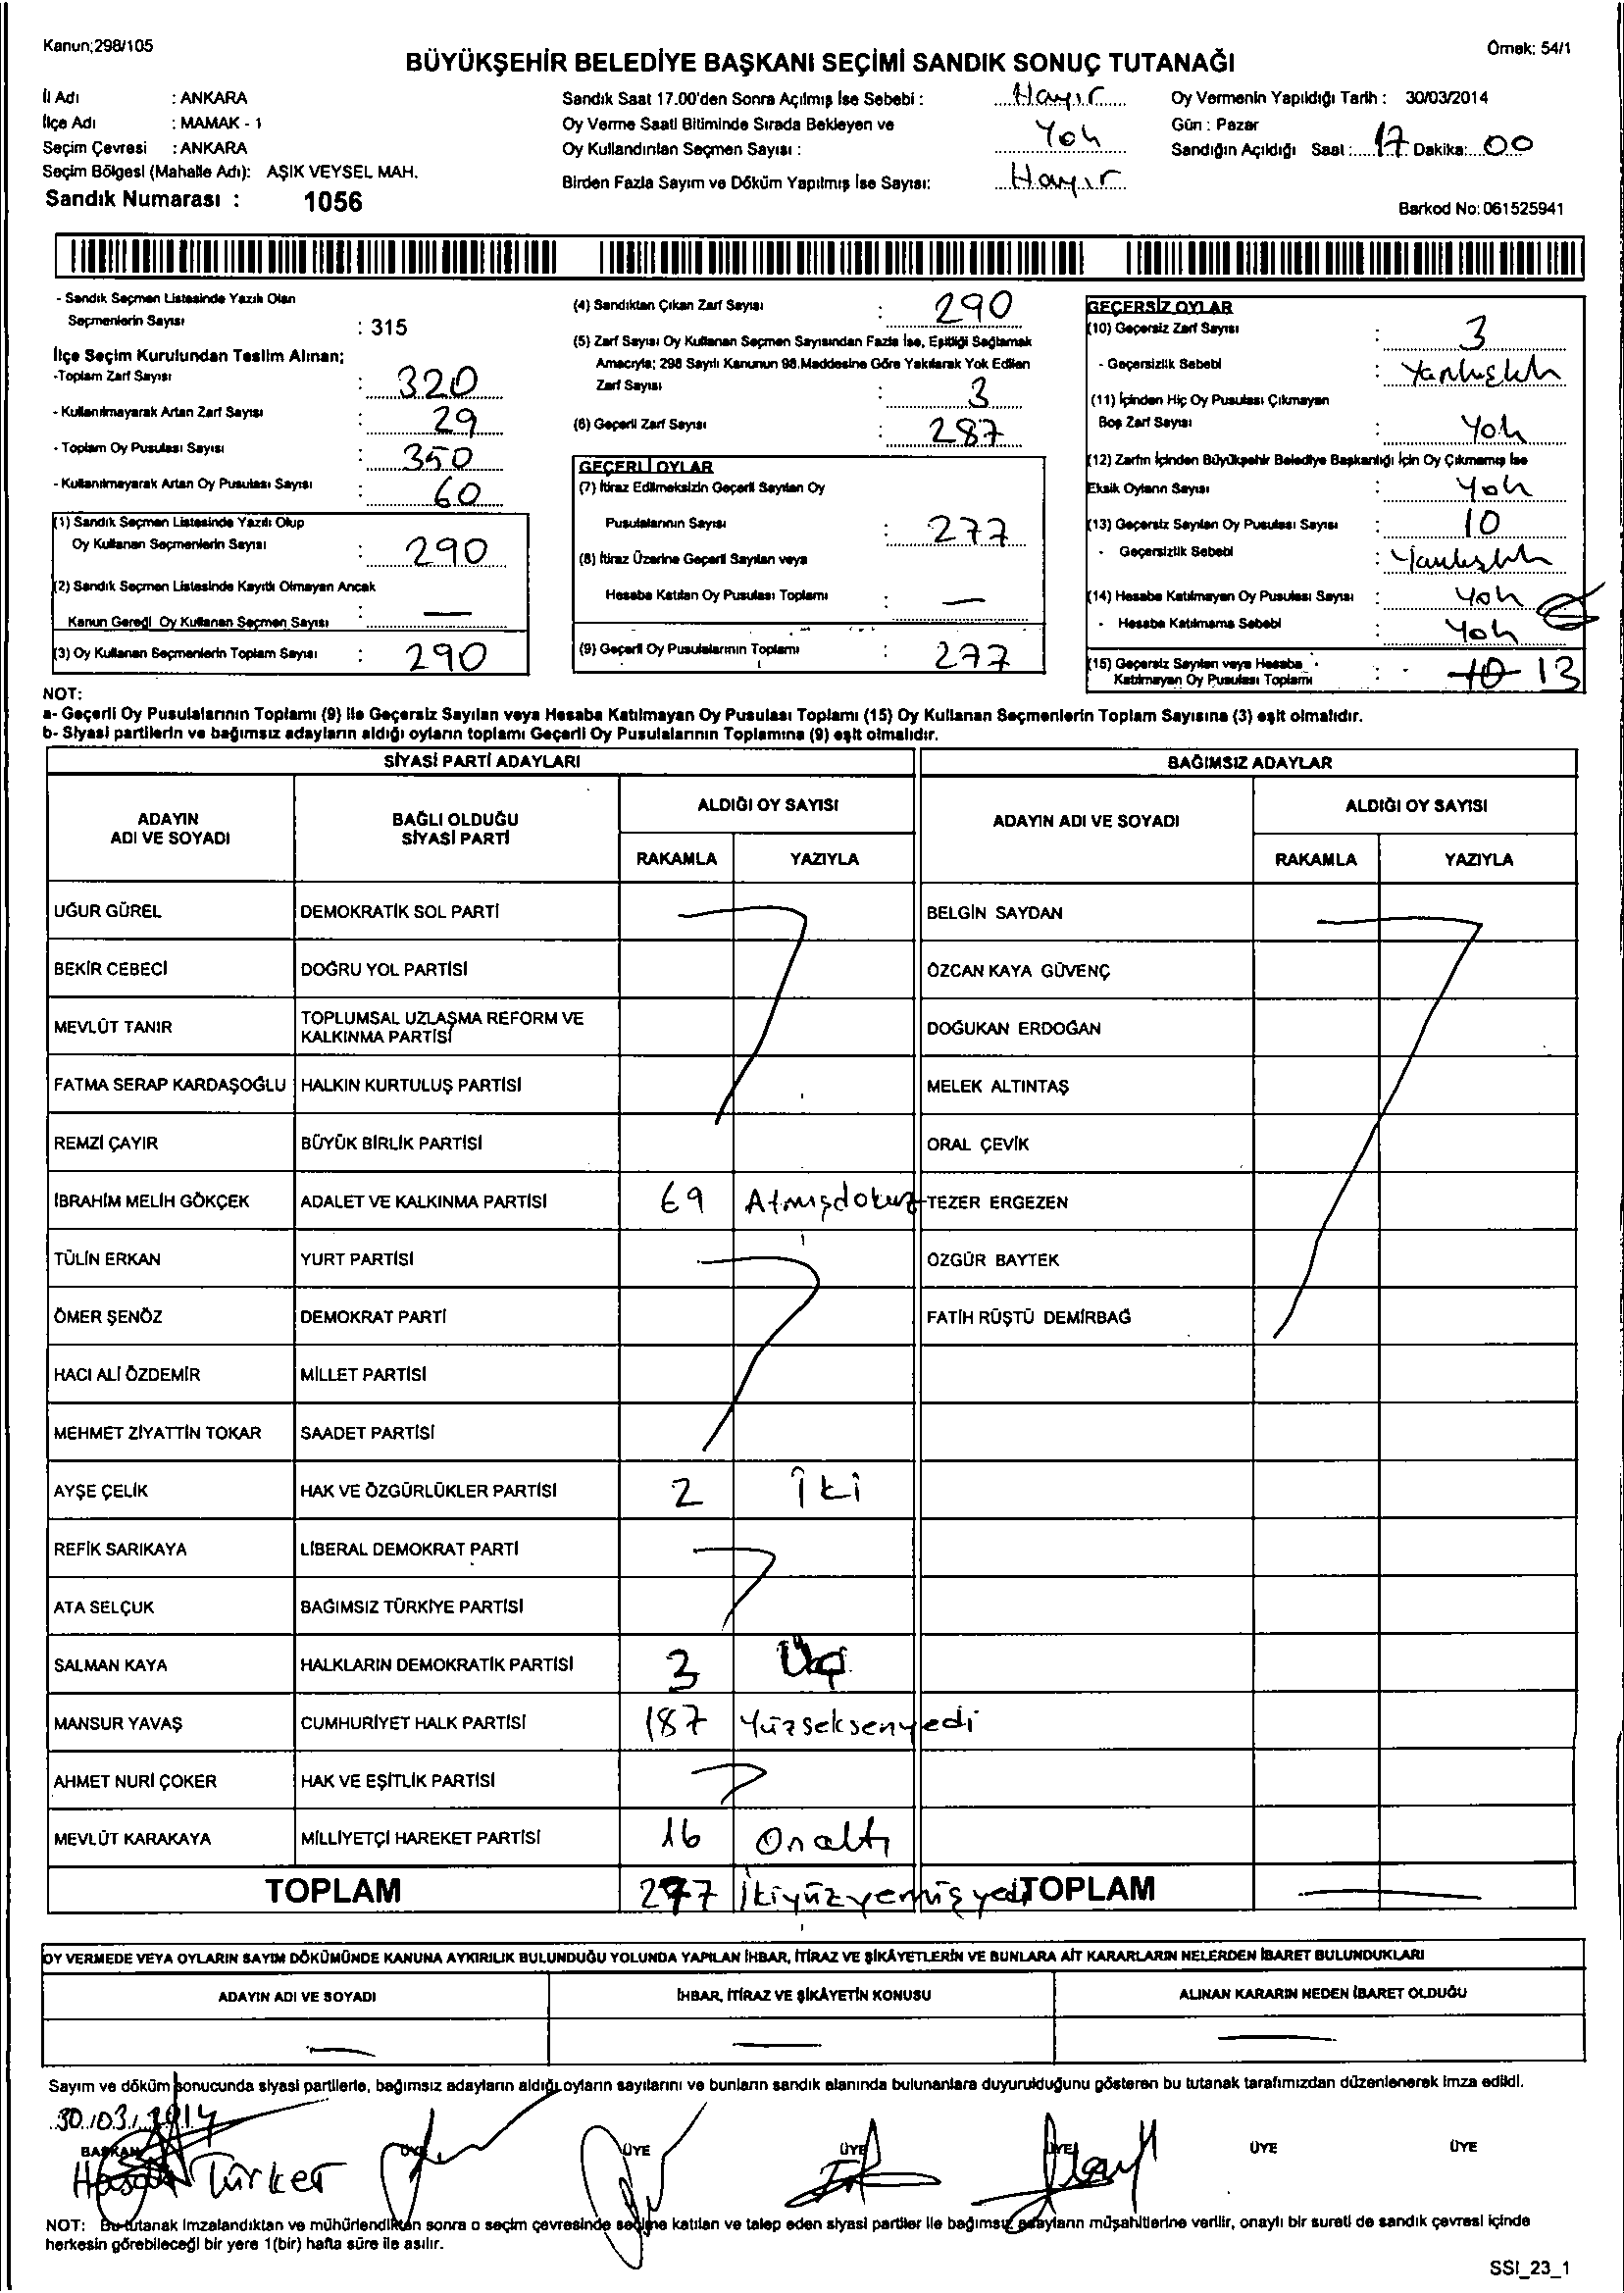 Kanun;298/105
Örnek: 54/1
BÜYÜKŞEHİR BELEDİYE BAŞKANI SEÇİMİ SANDIK SONUÇ TUTANAĞI
İl Adı : ANKARA
İlçe Adı : MAMAK - 1
Seçim Çevresi : ANKARA
Seçim Bölgesi (Mahalle Adı): AŞIK VEYSEL MAH.
Sandık Numarası : 1056
Sandık Saat 17.00'den Sonra Açılmış İse Sebebi : Hayır
Oy Verme Saati Bitiminde Sırada Bekleyen ve
Oy Kullandırılan Seçmen Sayısı : Yok
Birden Fazla Sayım ve Döküm Yapılmış İse Sayısı: Hayır
Oy Vermenin Yapıldığı Tarih : 30/03/2014
Gün : Pazar
Sandığın Açıldığı Saat : 17 Dakika: 00
Barkod No: 061525941
- Sandık Seçmen Listesinde Yazılı Olan
Seçmenlerin Sayısı : 315
İlçe Seçim Kurulundan Teslim Alınan;
-Toplam Zarf Sayısı : 320
- Kullanılmayarak Artan Zarf Sayısı : 29
- Toplam Oy Pusulası Sayısı : 350
- Kullanılmayarak Artan Oy Pusulası Sayısı : 60
(1) Sandık Seçmen Listesinde Yazılı Olup
Oy Kullanan Seçmenlerin Sayısı : 290
(2) Sandık Seçmen Listesinde Kayıtlı Olmayan Ancak
Kanun Gereği Oy Kullanan Seçmen Sayısı : —
(3) Oy Kullanan Seçmenlerin Toplam Sayısı : 290
(4) Sandıktan Çıkan Zarf Sayısı : 290
(5) Zarf Sayısı Oy Kullanan Seçmen Sayısından Fazla İse, Eşitliği Sağlamak
Amacıyla; 298 Sayılı Kanunun 98.Maddesine Göre Yakılarak Yok Edilen
Zarf Sayısı : 3
(6) Geçerli Zarf Sayısı : 287
GEÇERLİ OYLAR
(7) İtiraz Edilmeksizin Geçerli Sayılan Oy
Pusulalarının Sayısı : 277
(8) İtiraz Üzerine Geçerli Sayılan veya
Hesaba Katılan Oy Pusulası Toplamı : —
(9) Geçerli Oy Pusulalarının Toplamı : 277
GEÇERSİZ OYLAR
(10) Geçersiz Zarf Sayısı : 3
- Geçersizlik Sebebi : Yanlışlık
(11) İçinden Hiç Oy Pusulası Çıkmayan
Boş Zarf Sayısı : Yok
(12) Zarfın İçinden Büyükşehir Belediye Başkanlığı İçin Oy Çıkmamış İse
Eksik Oyların Sayısı : Yok
(13) Geçersiz Sayılan Oy Pusulası Sayısı : 10
- Geçersizlik Sebebi : Yanlışlık
(14) Hesaba Katılmayan Oy Pusulası Sayısı : Yok
- Hesaba Katılmama Sebebi : Yok
(15) Geçersiz Sayılan veya Hesaba
Katılmayan Oy Pusulası Toplamı : 10 13
NOT:
a- Geçerli Oy Pusulalarının Toplamı (9) ile Geçersiz Sayılan veya Hesaba Katılmayan Oy Pusulası Toplamı (15) Oy Kullanan Seçmenlerin Toplam Sayısına (3) eşit olmalıdır.
b- Siyasi partilerin ve bağımsız adayların aldığı oyların toplamı Geçerli Oy Pusulalarının Toplamına (9) eşit olmalıdır.
SİYASİ PARTİ ADAYLARI
BAĞIMSIZ ADAYLAR
ADAYIN ADI VE SOYADI
BAĞLI OLDUĞU SİYASİ PARTİ
ALDIĞI OY SAYISI
RAKAMLA YAZIYLA
ADAYIN ADI VE SOYADI
ALDIĞI OY SAYISI
RAKAMLA YAZIYLA
UĞUR GÜREL DEMOKRATİK SOL PARTİ BELGİN SAYDAN
BEKİR CEBECİ DOĞRU YOL PARTİSİ ÖZCAN KAYA GÜVENÇ
MEVLÜT TANIR TOPLUMSAL UZLAŞMA REFORM VE KALKINMA PARTİSİ DOĞUKAN ERDOĞAN
FATMA SERAP KARDAŞOĞLU HALKIN KURTULUŞ PARTİSİ MELEK ALTINTAŞ
REMZİ ÇAYIR BÜYÜK BİRLİK PARTİSİ ORAL ÇEVİK
İBRAHİM MELİH GÖKÇEK ADALET VE KALKINMA PARTİSİ 69 Atmışdokuz TEZER ERGEZEN
TÜLİN ERKAN YURT PARTİSİ ÖZGÜR BAYTEK
ÖMER ŞENÖZ DEMOKRAT PARTİ FATİH RÜŞTÜ DEMİRBAĞ
HACI ALİ ÖZDEMİR MİLLET PARTİSİ
MEHMET ZİYATTİN TOKAR SAADET PARTİSİ
AYŞE ÇELİK HAK VE ÖZGÜRLÜKLER PARTİSİ 2 İki
REFİK SARIKAYA LİBERAL DEMOKRAT PARTİ
ATA SELÇUK BAĞIMSIZ TÜRKİYE PARTİSİ
SALMAN KAYA HALKLARIN DEMOKRATİK PARTİSİ 3 Üç
MANSUR YAVAŞ CUMHURİYET HALK PARTİSİ 187 Yüzseksenyedi
AHMET NURİ ÇOKER HAK VE EŞİTLİK PARTİSİ
MEVLÜT KARAKAYA MİLLİYETÇİ HAREKET PARTİSİ 16 Onaltı
TOPLAM 277 İkiyüzyemişyedi TOPLAM —
OY VERMEDE VEYA OYLARIN SAYIM DÖKÜMÜNDE KANUNA AYKIRILIK BULUNDUĞU YOLUNDA YAPILAN İHBAR, İTİRAZ VE ŞİKÂYETLERİN VE BUNLARA AİT KARARLARIN NELERDEN İBARET BULUNDUKLARI
ADAYIN ADI VE SOYADI İHBAR, İTİRAZ VE ŞİKÂYETİN KONUSU ALINAN KARARIN NEDEN İBARET OLDUĞU
— — —
Sayım ve döküm sonucunda siyasi partilerle, bağımsız adayların aldığı oyların sayılarını ve bunların sandık alanında bulunanlara duyurulduğunu gösteren bu tutanak tarafımızdan düzenlenerek imza edildi.
30/03/2014
BAŞKAN ÜYE ÜYE ÜYE ÜYE ÜYE ÜYE
Hasan Türker
NOT: Bu tutanak imzalandıktan ve mühürlendikten sonra o seçim çevresinde seçime katılan ve talep eden siyasi partiler ile bağımsız adayların müşahitlerine verilir, onaylı bir sureti de sandık çevresi içinde
herkesin görebileceği bir yere 1(bir) hafta süre ile asılır.
SSI_23_1